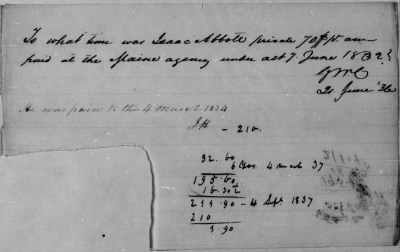 To what time was Isaac Abbott private
paid at the Maine agency under act 7. June 1832?
21 June
He was paid to the 4 March 1834
- 210.
32.60
4 March 37
195.60
16.30
- 4 Sept. 1837
210